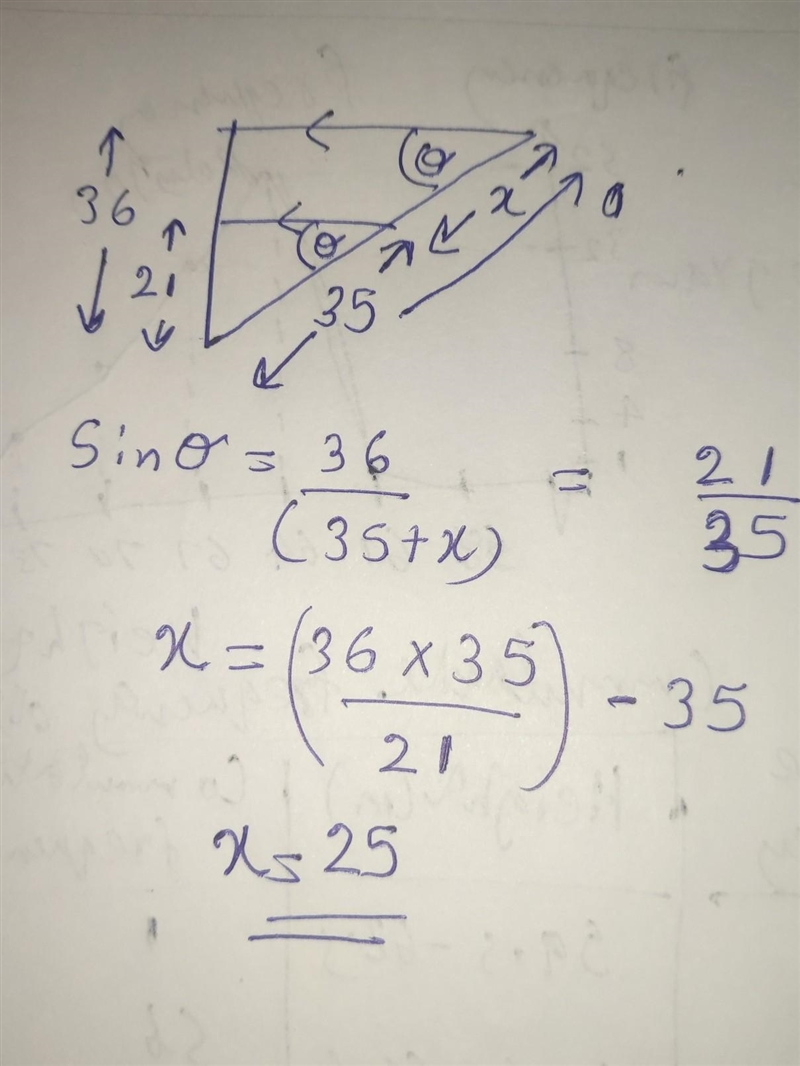 θ
36
x
θ
21
35
Sinθ = 36/(35+x) = 21/35
x = (36 × 35/21) - 35
x = 25